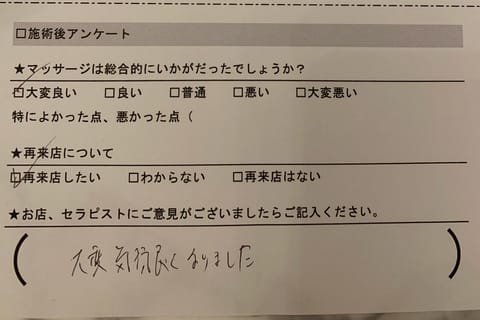 □施術後アンケート
★マッサージは総合的にいかがだったでしょうか？
□大変良い □良い □普通 □悪い □大変悪い
特によかった点、悪かった点（
★再来店について
□再来店したい □わからない □再来店はない
★お店、セラピストにご意見がございましたらご記入ください。
(大変気持良くなりました)